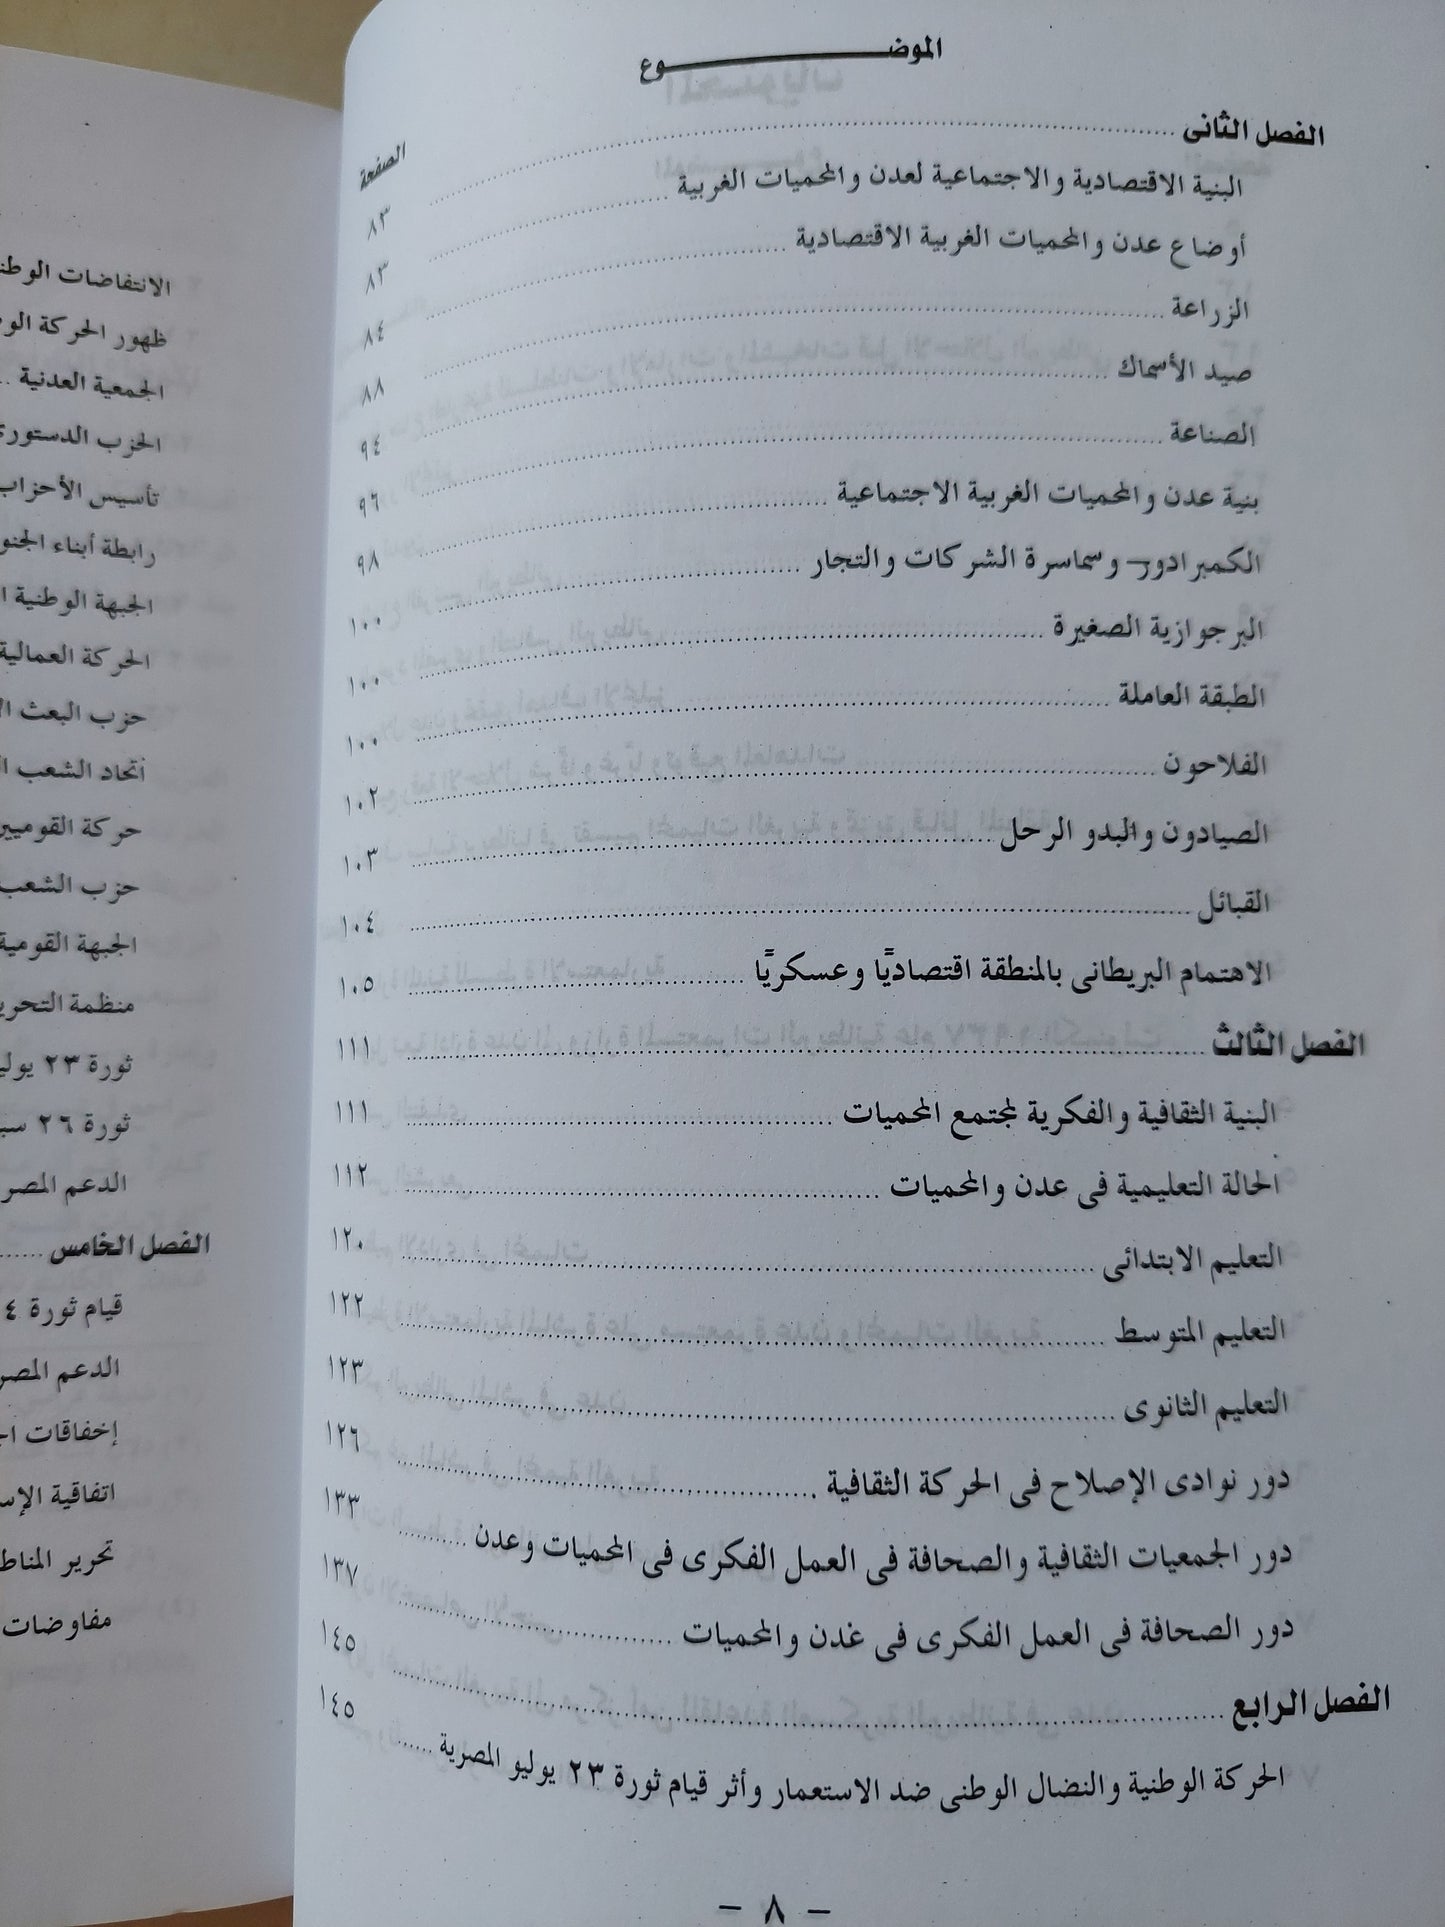 الموضـــــــــوع
الصفحة
الفصل الثانى ........ ٨٣
البنية الاقتصادية والاجتماعية لعدن والمحميات الغربية ........ ٨٣
أوضاع عدن والمحميات الغربية الاقتصادية ........ ٨٤
الزراعة ........ ٨٨
صيد الأسماك ........ ٩٤
الصناعة ........ ٩٦
بنية عدن والمحميات الغربية الاجتماعية ........ ٩٨
الكمبرادور وسماسرة الشركات والتجار ........ ١٠٠
البرجوازية الصغيرة ........ ١٠٠
الطبقة العاملة ........ ١٠٠
الفلاحون ........ ١٠٢
الصيادون والبدو الرحل ........ ١٠٣
القبائل ........ ١٠٤
الاهتمام البريطانى بالمنطقة اقتصاديًا وعسكريًا ........ ١٠٥
الفصل الثالث ........ ١١١
البنية الثقافية والفكرية لمجتمع المحميات ........ ١١١
الحالة التعليمية فى عدن والمحميات ........ ١١٢
التعليم الابتدائى ........ ١٢٠
التعليم المتوسط ........ ١٢٢
التعليم الثانوى ........ ١٢٣
دور نوادى الإصلاح فى الحركة الثقافية ........ ١٢٦
دور الجمعيات الثقافية والصحافة فى العمل الفكرى فى المحميات وعدن ........ ١٣٣
دور الصحافة فى العمل الفكرى فى عدن والمحميات ........ ١٣٧
الفصل الرابع ........ ١٤٥
الحركة الوطنية والنضال الوطنى ضد الاستعمار وأثر قيام ثورة ٢٣ يوليو المصرية ........ ١٤٥
– ٨ –
الانتفاضات
ظهور الحركة
الجمعية العدنية ..
الحزب
تأسيس الأحزاب
رابطة أبناء
الجبهة الوطنية
الحركة العمالية
حزب البعث
اتحاد الشعب
حركة
حزب الشعب
الجبهة القومية
منظمة
ثورة ٢٣
ثورة ٢٦
الدعم
الفصل الخامس ......
قيام ثورة
الدعم
إخفاقات
اتفاقية
تحرير
مفاوضات